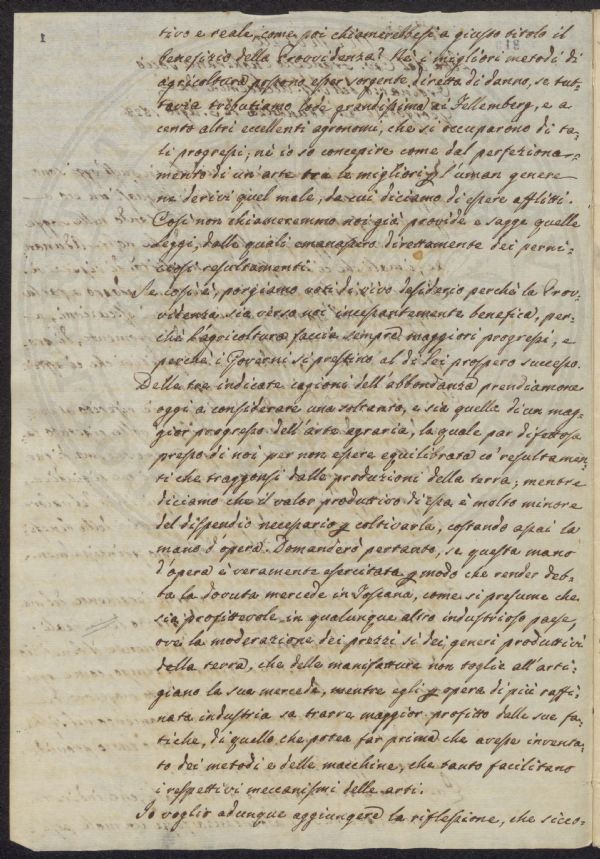 1
tivo e reale, come poi chiamerebbesi a giusto titolo il
benefizio della Provvidenza? Nè i migliori metodi di
agricoltura possono esser sorgente diretta di danno, se tut-
tavia tributiamo lode grandissima ai Fellemberg, e a
cento altri eccellenti agronomi, che si occuparono di ta-
li progressi; nè io so concepire come dal perfeziona-
mento di un'arte tra le migliori p l'uman genere
ne derivi quel male, da cui diciamo di essere afflitti.
Così non chiameremmo noi già provide e sagge quelle
Leggi, dalle quali emanassero direttamente dei perni-
ciosi resultamenti.
Se così è, porgiamo voti di vivo desiderio perchè la Prov-
videnza sia verso noi incessantemente benefica, per-
chè l'agricoltura faccia sempre maggiori progressi, e
perchè i Governi si prestino al di lei prospero successo.
Delle tre indicate cagioni dell'abbondanza prendiamone
oggi a considerare una soltanto, e sia quella di un mag-
gior progresso dell'arte agraria, la quale par difettosa
presso di noi per non essere equilibrata co' resultamen-
ti che traggonsi dalle produzioni della terra; mentre
diciamo che il valor produttivo di essa è molto minore
del dispendio necessario p coltivarla, costando assai la
mano d'opera. Domanderò pertanto, se questa mano
d'opera è veramente esercitata p modo che render deb-
ba la dovuta mercede in Toscana, come si presume che
sia profittevole in qualunque altro industrioso paese,
ove la moderazione dei prezzi sì dei generi produttivi
della terra, che delle manifatture non toglie all'arti-
giano la sua mercede, mentre egli p opera di più raffi-
nata industria sa trarre maggior profitto delle sue fa-
tiche, di quello che potea far prima che avesse inventa-
to dei metodi e delle macchine, che tanto facilitano
i respettivi meccanismi delle arti.
Io voglio adunque aggiungere la riflessione, che sicco-